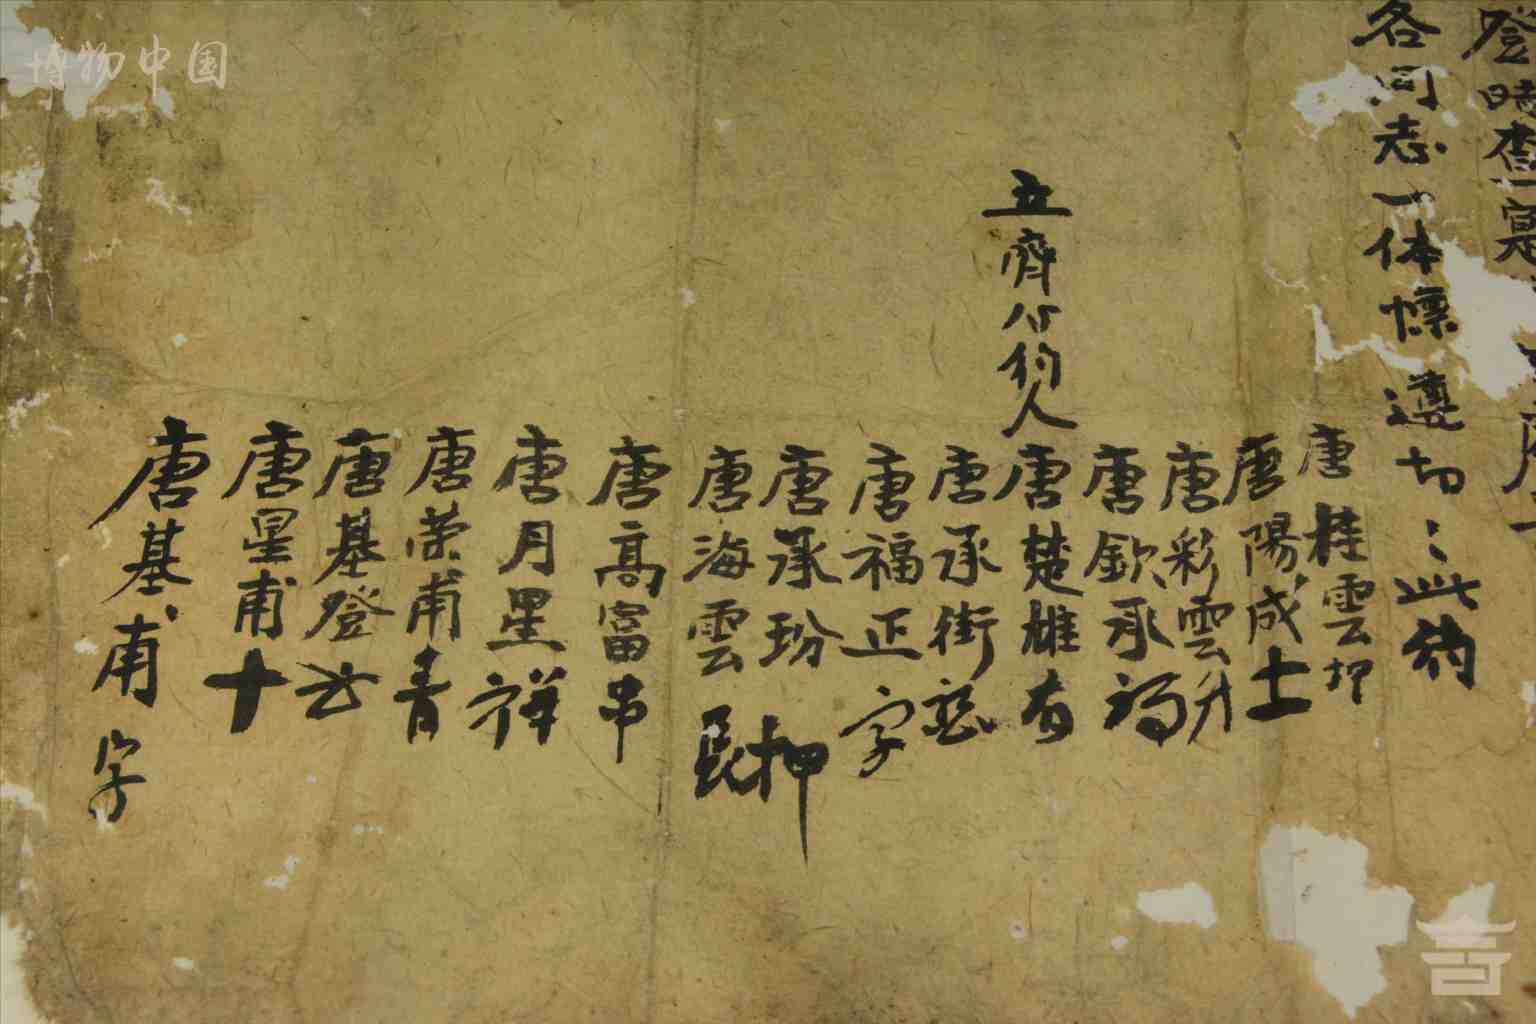 登時查
各同志一体懔遵切〻此約
立齊公約人
唐桂雲押
唐陽成士
唐彩雲升
唐欽承
唐楚雄有
唐承街
唐福正字
唐承玢押
唐海雲
唐高富串
唐月星祥
唐荣甫青
唐基登
唐星甫十
唐基甫字
博物中国